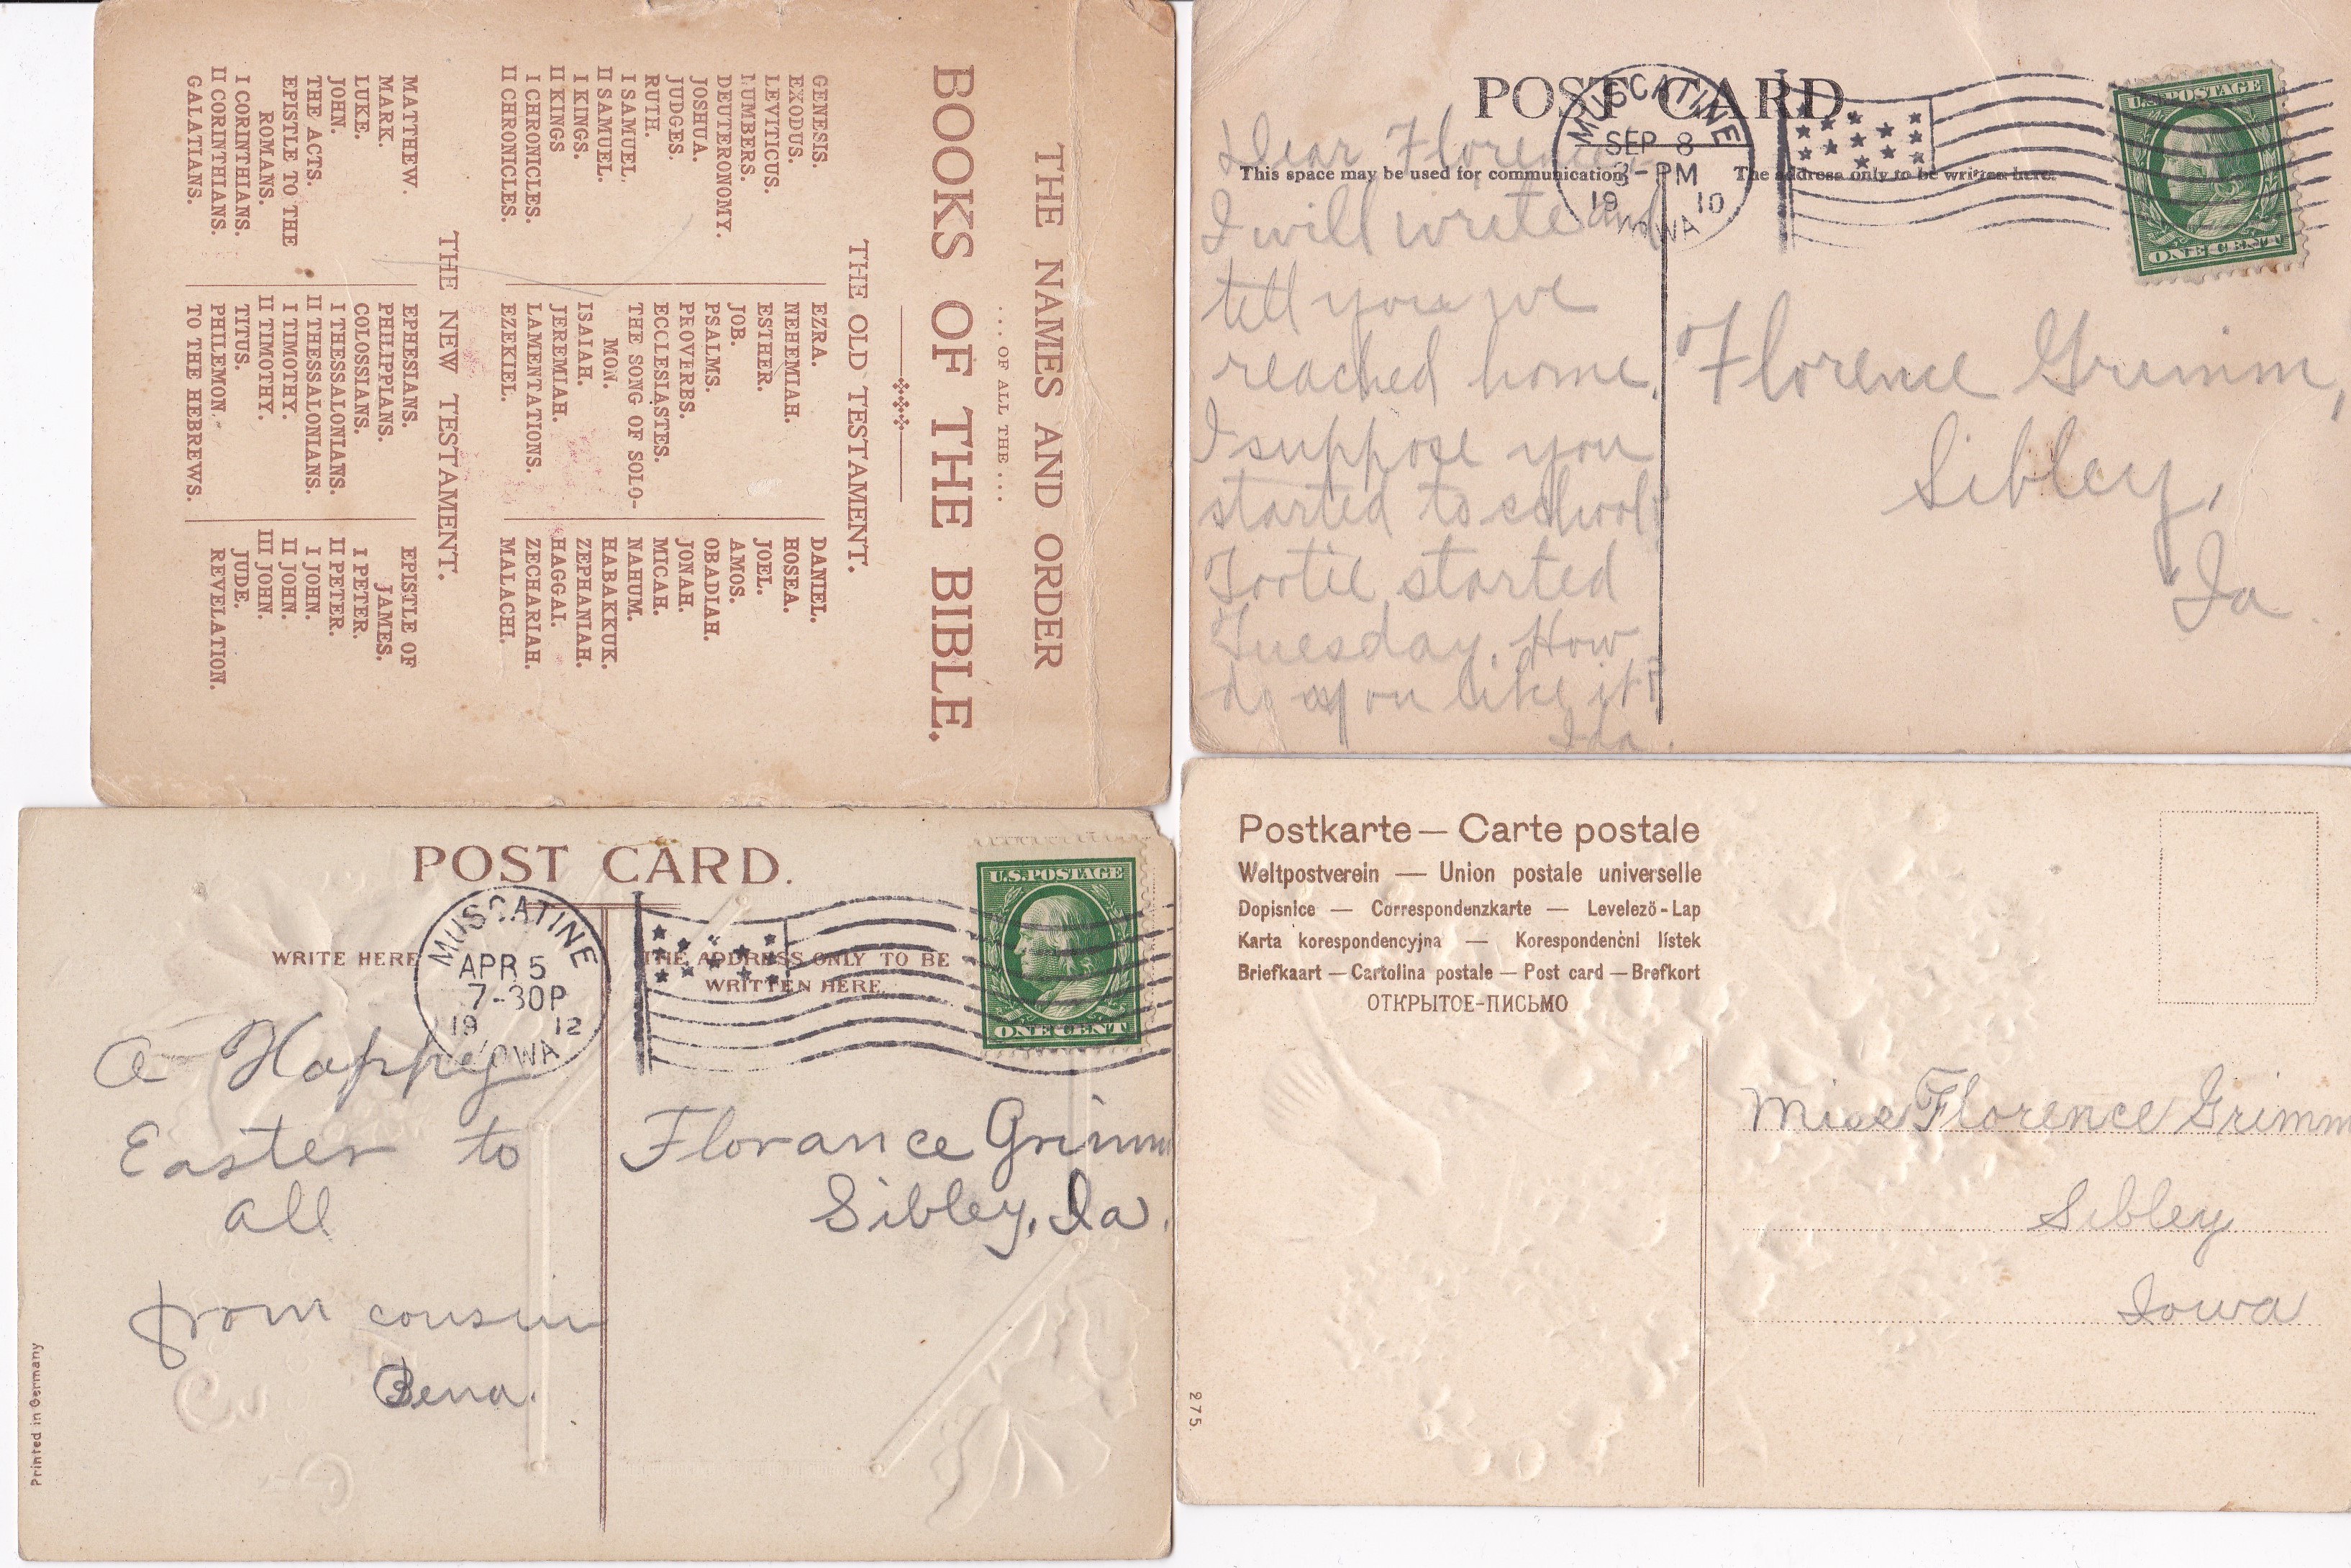 THE NAMES AND ORDER
.... OF ALL THE ...
BOOKS OF THE BIBLE.
THE OLD TESTAMENT.
GENESIS.
EXODUS.
LEVITICUS.
NUMBERS.
DEUTERONOMY.
JOSHUA.
JUDGES.
RUTH.
I SAMUEL.
II SAMUEL.
I KINGS.
II KINGS
I CHRONICLES.
II CHRONICLES.
EZRA.
NEHEMIAH.
ESTHER.
JOB.
PSALMS.
PROVERBS.
ECCLESIASTES.
THE SONG OF SOLO-
MON.
ISAIAH.
JEREMIAH.
LAMENTATIONS.
EZEKIEL.
DANIEL.
HOSEA.
JOEL.
AMOS.
OBADIAH.
JONAH.
MICAH.
NAHUM.
HABAKKUK.
ZEPHANIAH.
HAGGAI.
ZECHARIAH.
MALACHI.
THE NEW TESTAMENT.
MATTHEW.
MARK.
LUKE.
JOHN.
THE ACTS.
EPISTLE TO THE
ROMANS.
I CORINTHIANS.
II CORINTHIANS.
GALATIANS.
EPHESIANS.
PHILIPPIANS.
COLOSSIANS.
I THESSALONIANS.
II THESSALONIANS.
I TIMOTHY.
II TIMOTHY.
TITUS.
PHILEMON.
TO THE HEBREWS.
EPISTLE OF
JAMES.
I PETER.
II PETER.
I JOHN.
II JOHN.
III JOHN.
JUDE.
REVELATION.
POST CARD
This space may be used for communication.
The address only to be written here.
MUSCATINE
SEP 8
3-PM
19 10
IOWA
U.S. POSTAGE
ONE CENT
Dear Florence:-
I will write and
tell you we
reached home.
I suppose you
started to school
Tootie started
Tuesday. How
do you like it?
Ida.
Florence Grimm,
Sibley,
Ia
POST CARD.
WRITE HERE
THE ADDRESS ONLY TO BE
WRITTEN HERE
MUSCATINE
APR 5
7-30P
19 12
IOWA
U.S. POSTAGE
ONE CENT
A Happy
Easter to
all
from cousin
Bena.
Florance Grimm
Sibley, Ia.
Printed in Germany
Postkarte — Carte postale
Weltpostverein — Union postale universelle
Dopisnice — Correspondenzkarte — Levelező-Lap
Karta korespondencyjna — Korespondenční lístek
Briefkaart — Cartolina postale — Post card — Brefkort
ОТКРЫТОЕ-ПИСЬМО
Miss Florence Grimm
Sibley
Iowa
275.